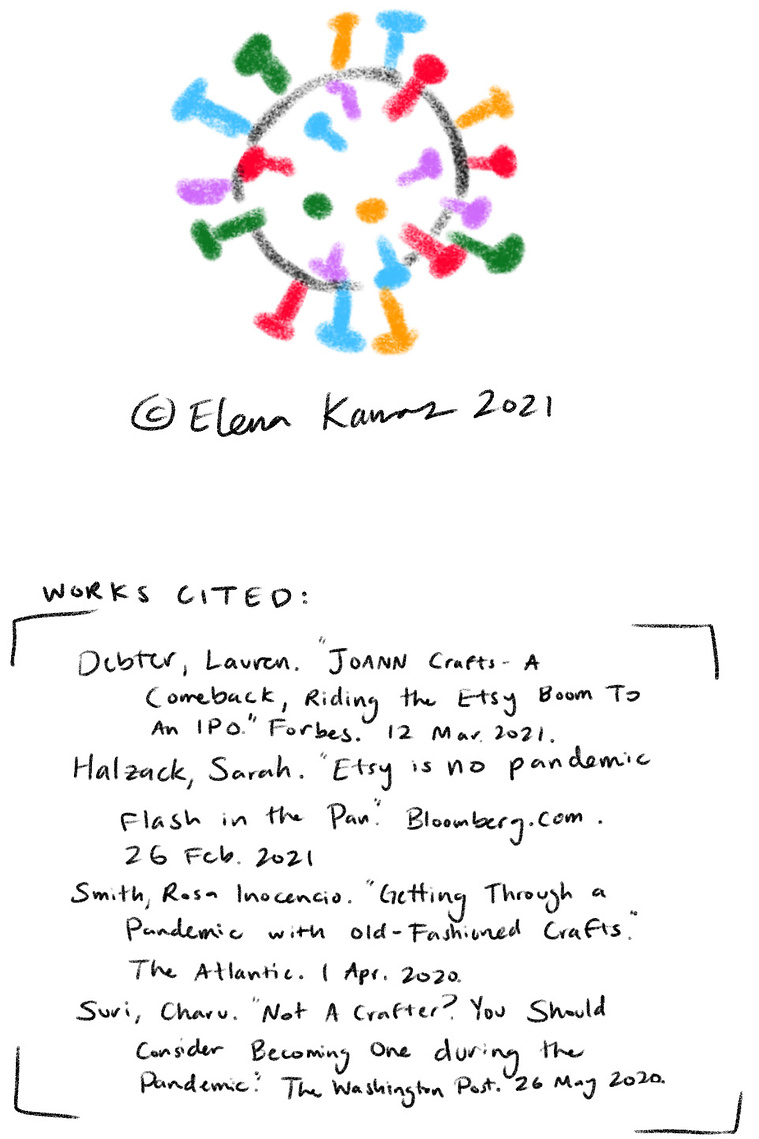 © Elena 2021
WORKS CITED:
Debter, Lauren. "JOANN Crafts - A
Comeback, Riding the Etsy Boom To
An IPO." Forbes. 12 Mar. 2021.
Halzack, Sarah. "Etsy is no pandemic
Flash in the Pan." Bloomberg.com.
26 Feb. 2021
Smith, Rosa Inocencio. "Getting Through a
Pandemic with old-Fashioned Crafts."
The Atlantic. 1 Apr. 2020.
Suri, Charu. "Not A Crafter? You Should
Consider Becoming One during the
Pandemic." The Washington Post. 26 May 2020.